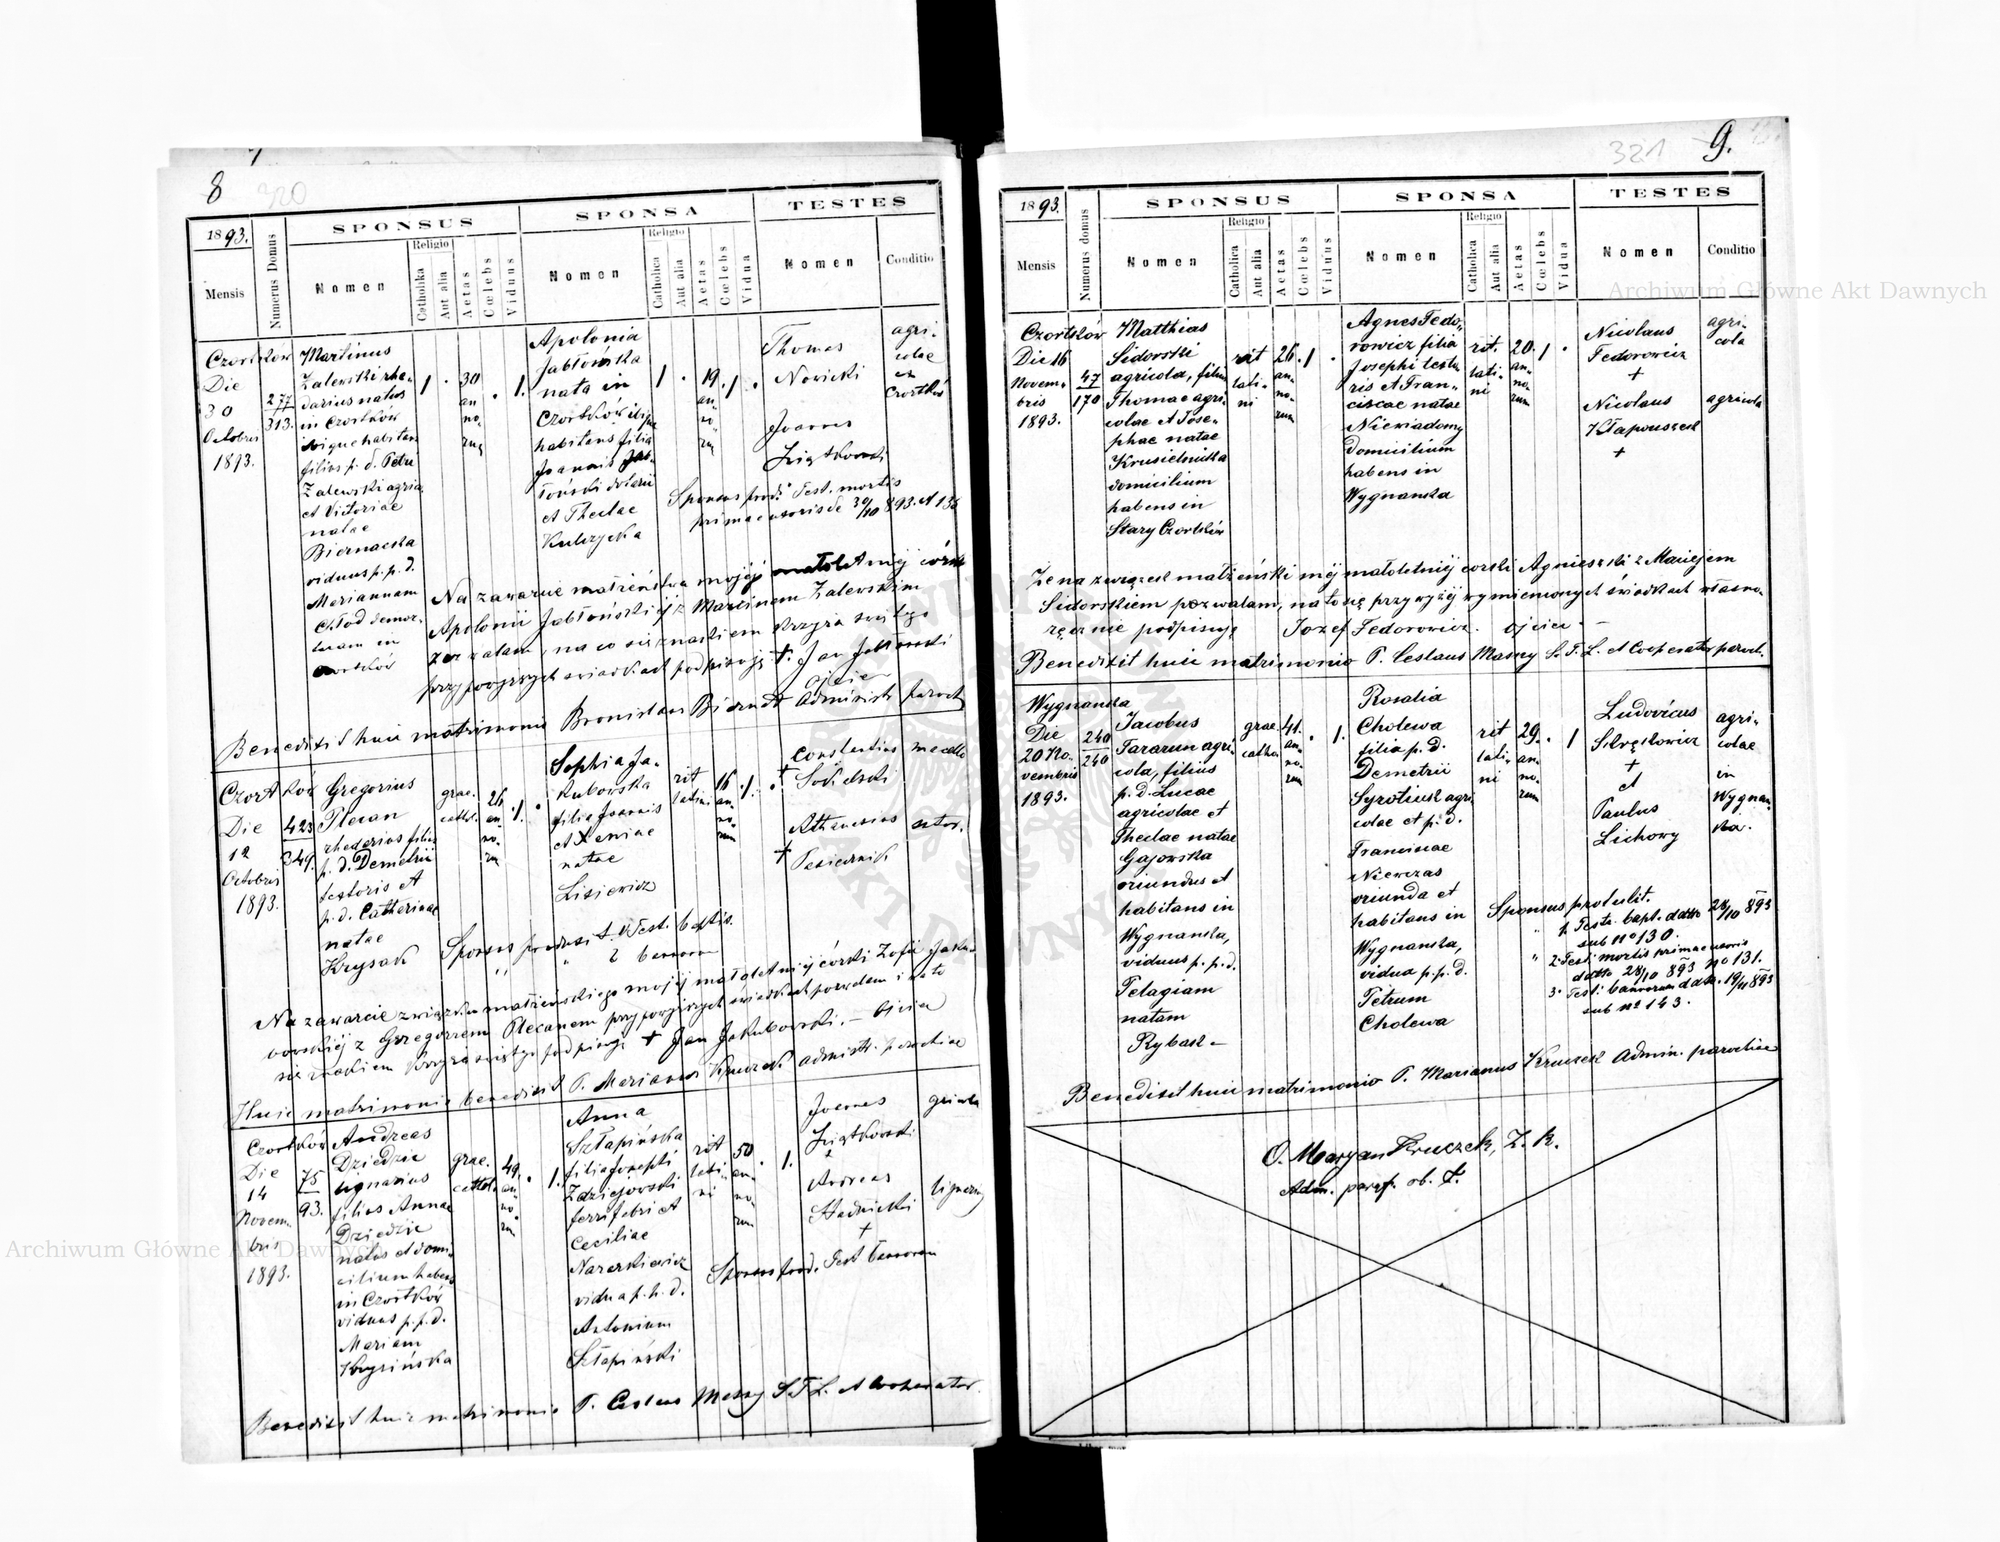 8
1893.
Mensis
Numerus Domus
SPONSUS
Nomen
Religio
Catholika
Aut alia
Aetas
Cœlebs
Viduus
SPONSA
Nomen
Religio
Catholica
Aut alia
Aetas
Cœlebs
Vidua
TESTES
Nomen
Conditio
Czortków
Die
30
Octobris
1893.
277
313.
Martinus
Zalewski rhe-
darius natus
in Czortków
ibique habitans
filius p. d. Petri
Zalewski agric.
et Victoriae
natae
Biernacka
viduus p. p. d.
Mariannam
Chłod demor-
tuam in
Czortków
1
30
an
no-
rum
1.
Apolonia
Jabłońska
nata in
Czortków ibique
habitans filia
Joannis Jab-
łoński dolarii
et Theclae
Kulczycka
1
19.
an
no-
rum
1
Thomas
Nowicki
Joannes
Ziątkowski
agri-
colae
ex
Czortków
Sponsus prod. Test. mortis
primae uxoris de 30/10 893. N 136
Na zawarcie małżeństwa mojej małoletniej córki
Apolonii Jabłońskiej z Marcinem Zalewskim
zezwalam, na co się znakiem krzyża świętego
przy powyższych świadkach podpisuję †. Jan Jabłoński
ojciec
Benedixit huic matrimonio Bronislaus Biernat Administr. paroch
Czortków
Die
12
Octobris
1893.
423
349.
Gregorius
Plecan
rhedarius filius
p. d. Demetrii
textoris et
p. d. Catharinae
natae
Krysak
grae.
cathol.
26
an-
no-
rum
1.
Sophia Ja-
kubowska
filia Joannis
et Xeniae
natae
Lisiewicz
rit
latini
16
an-
no-
rum
1.
Constantius
† Sokolski
Athanasius
† Pasiecznik
sutor.
Sponsus produxit 1. Test. baptis.
" " 2 bannorum
Na zawarcie związku małżeńskiego mojej małoletniej córki Zofii Jaku-
bowskiej z Grzegorzem Plecanem przy powyższych świadkach pozwalam i na to
się znakiem krzyża świętego podpisuję † Jan Jakubowski. — Ojciec
Huic matrimonio benedixit P. Marianus Kruczek administr. parochiae
Czortków
Die
14
Novem-
bris
1893.
75
93.
Andreas
Dziedzic
lignarius
filius Annae
Dziedzic
natus et domi-
cilium habens
in Czortków
viduus p. p. d.
Mariam
Krysińska
grae.
cathol.
49.
an-
no
rum
1.
Anna
Szłapińska
filia Josephi
Zdziejowski
ferrifabri et
Ceciliae
Nazarkiewicz
vidua p. p. d.
Antonium
Szłapiński
rit
lati-
ni
50
an-
no-
rum
1.
Joannes
Ziątkowski
Andreas
Stadnicki
†
lignarius
Sponsus prod. Test bannorum
Benedixit huic matrimonio P. Ceslaus Masny S. T. L. et Cooperator.
321
9.
1893.
Mensis
Numerus domus
SPONSUS
Nomen
Religio
Catholica
Aut alia
Aetas
Cœlebs
Viduus
SPONSA
Nomen
Religio
Catholica
Aut alia
Aetas
Cœlebs
Vidua
TESTES
Nomen
Conditio
Czortków
Die 16
Novem-
bris
1893.
47
170
Matthias
Sidorski
agricola, filius
Thomae agri-
colae et Jose-
phae natae
Krusielnicka
domicilium
habens in
Stary Czortków
rit
lati-
ni
26.
an-
no-
rum
1
Agnes Fedo-
rowicz filia
Josephi texto
ris et Fran-
ciscae natae
Niewiadomy
domicilium
habens in
Wygnanka
rit.
lati-
ni
20.
an-
no-
rum
1
Nicolaus
Fedorowicz
†
Nicolaus
Kłapouszek
†
agri-
cola
agricola
Że na związek małżeński mej małoletniej corki Agnieszki z Maciejem
Sidorskiem pozwalam, na to się przy wyżej wymienionych świadkach własno-
ręcznie podpisuję Józef Fedorowicz. ojciec —
Benedixit huic matrimonio P. Ceslaus Masny S. T. L. et Cooperator paroch.
Wygnanka
Die
20 No-
vembris
1893.
240
240
Jacobus
Tararun agri-
cola, filius
p. d. Lucae
agricolae et
Theclae natae
Gajowska
oriundus et
habitans in
Wygnanka,
viduus p. p. d.
Pelagiam
natam
Rybak –
grae.
catho.
41.
an-
no-
rum
1.
Rosalia
Cholewa
filia p. d.
Demetrii
Syrotiuk agri
colae et p. d.
Franciscae
Niewczas
oriunda et
habitans in
Wygnanka,
vidua p. p. d.
Petrum
Cholewa
rit
lati-
ni
29.
an-
no-
rum
1
Ludovicus
Skrętowicz
†
et
Paulus
Lichowy
agri-
colae
in
Wygnan-
ka.
Sponsus protulit.
" 1. Testi. bapt. ddtto 28/10 893
sub No 130.
" 2. Testi mortis primae uxoris
ddtto 28/10 893 No 131.
3. Testi. bannorum ddtto. 19/11 893
sub No 143.
Benedixit huic matrimonio P. Marianus Kruczek Admin. parochiae
O. Maryan Kruczek, Z. k.
Adm. paraf. ob. ł.
Archiwum Główne Akt Dawnych
Archiwum Główne Akt Dawnych